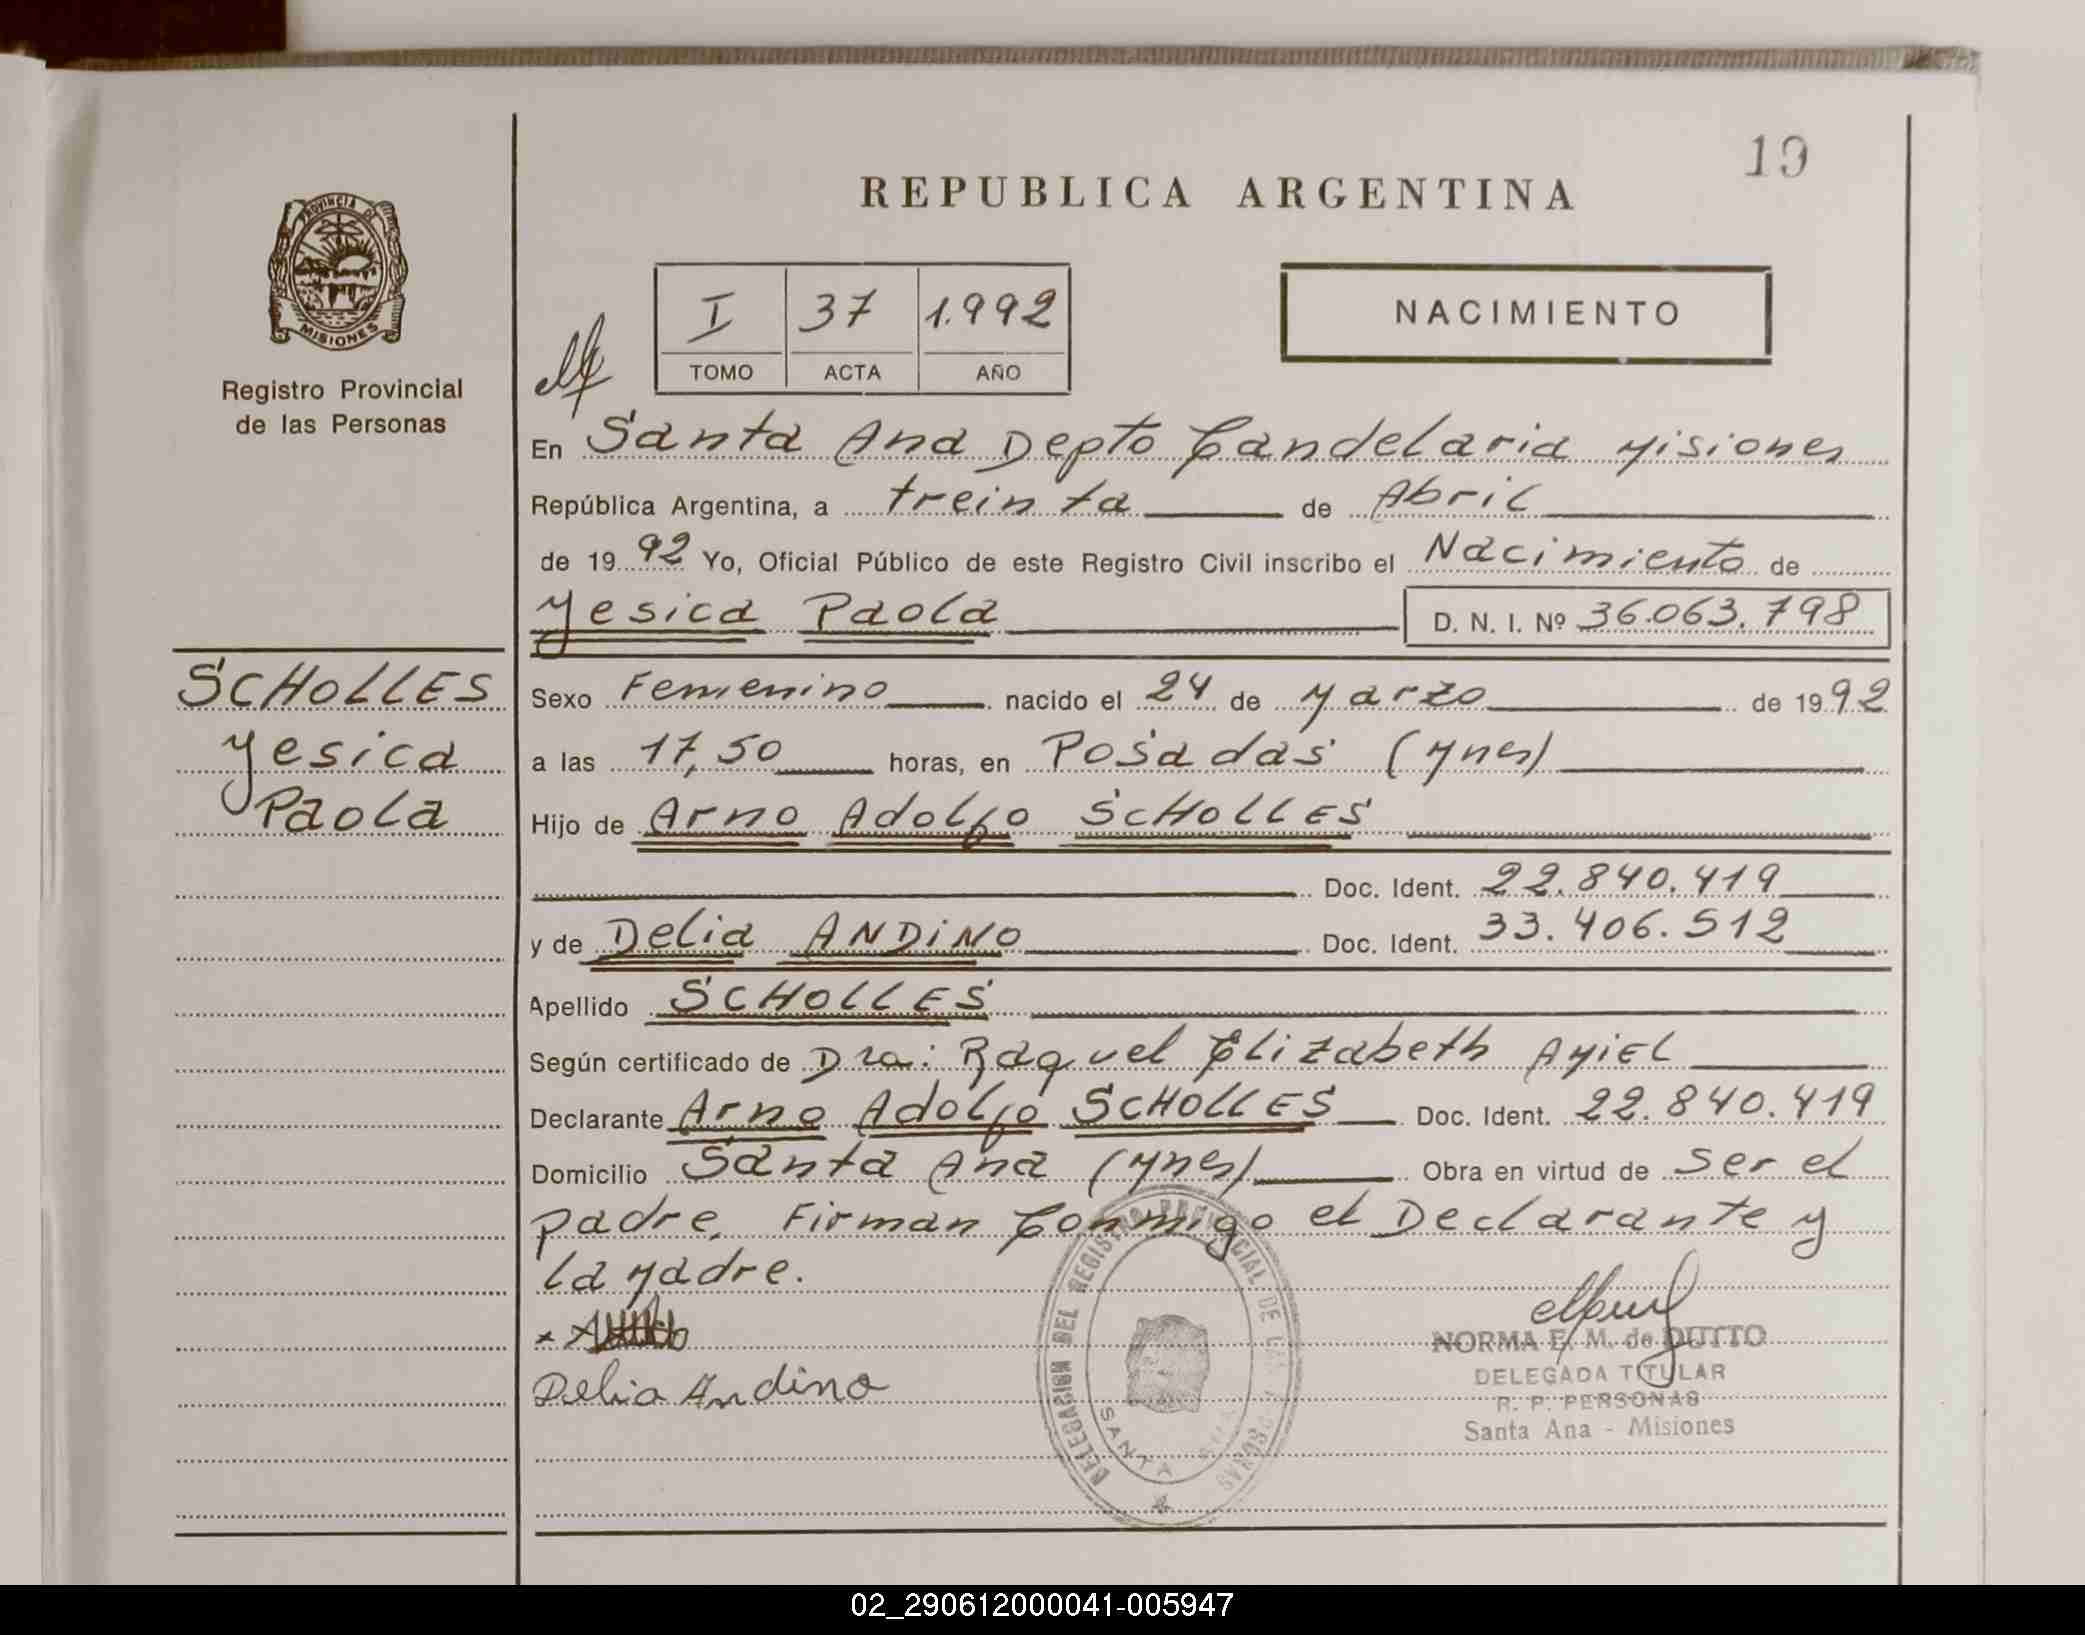 19
REPUBLICA ARGENTINA
PROVINCIA DE
MISIONES
Registro Provincial
de las Personas
I 37 1.992
TOMO ACTA AÑO
NACIMIENTO
En Santa Ana Depto Candelaria Misiones
República Argentina, a treinta de Abril
de 1992 Yo, Oficial Público de este Registro Civil inscribo el Nacimiento de
Yesica Paola D. N. I. Nº 36.063.798
SCHOLLES
Yesica
Paola
Sexo Femenino nacido el 24 de Marzo de 1992
a las 17,50 horas, en Posadas (Mnes)
Hijo de Arno Adolfo SCHOLLES
Doc. Ident. 22.840.419
y de Delia ANDINO Doc. Ident. 33.406.512
Apellido SCHOLLES
Según certificado de Dra: Raquel Elizabeth AMIEL
Declarante Arno Adolfo SCHOLLES Doc. Ident. 22.840.419
Domicilio Santa Ana (Mnes) Obra en virtud de ser el
padre, Firman Conmigo el Declarante y
la Madre.
Delia Andino
DELEGACION DEL REGISTRO PROVINCIAL DE LAS PERSONAS
SANTA ANA
NORMA E. M. de DUTTO
DELEGADA TITULAR
R. P. PERSONAS
Santa Ana - Misiones
02_290612000041-005947